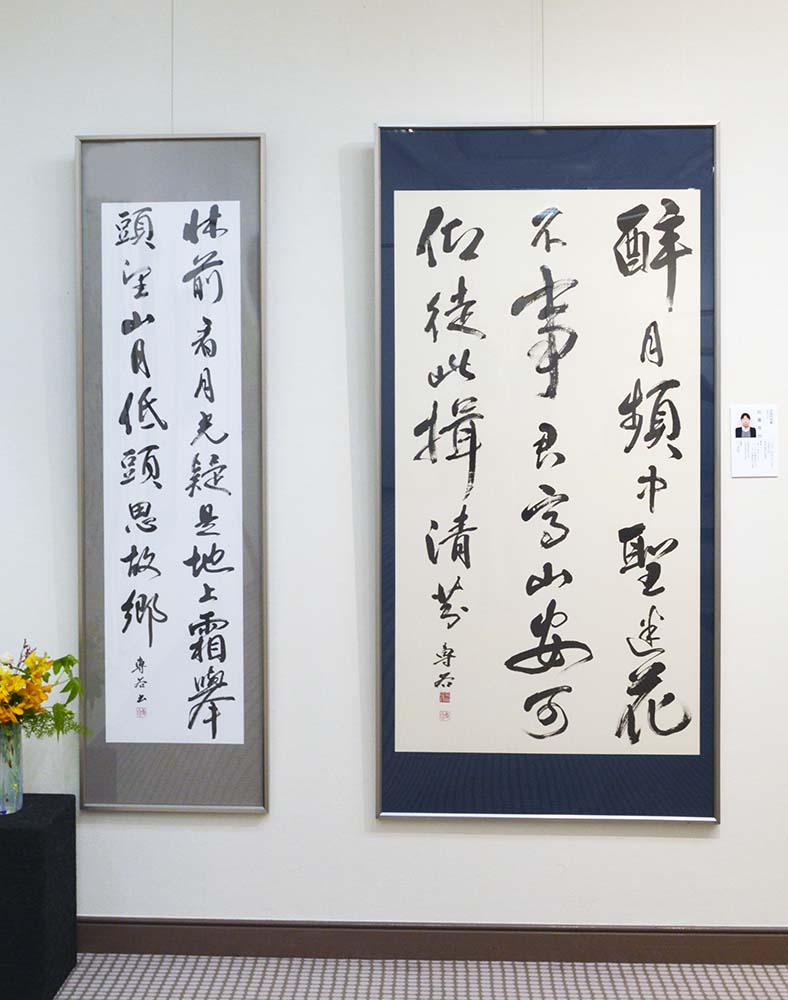 醉月頻中聖迷花
不事君高山安可
仰徒此揖清芬 專谷
牀前看月光疑是地上霜舉
頭望山月低頭思故鄉
專谷書